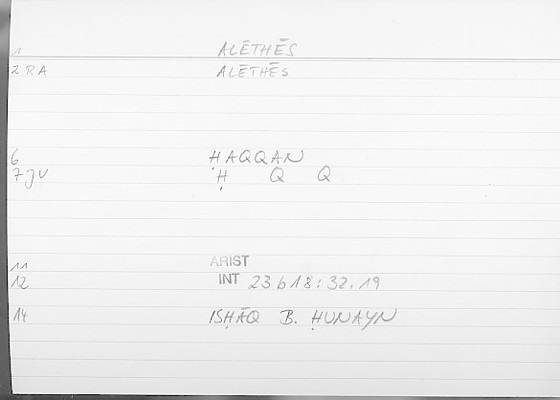 1 ALĒTHĒS
2 RA ALĒTHĒS
6 ḤAQQAN
7 JV Ḥ Q Q
11 ARIST
12 INT 23 b 18 : 32.19
14 ISḤĀQ B. ḤUNAYN